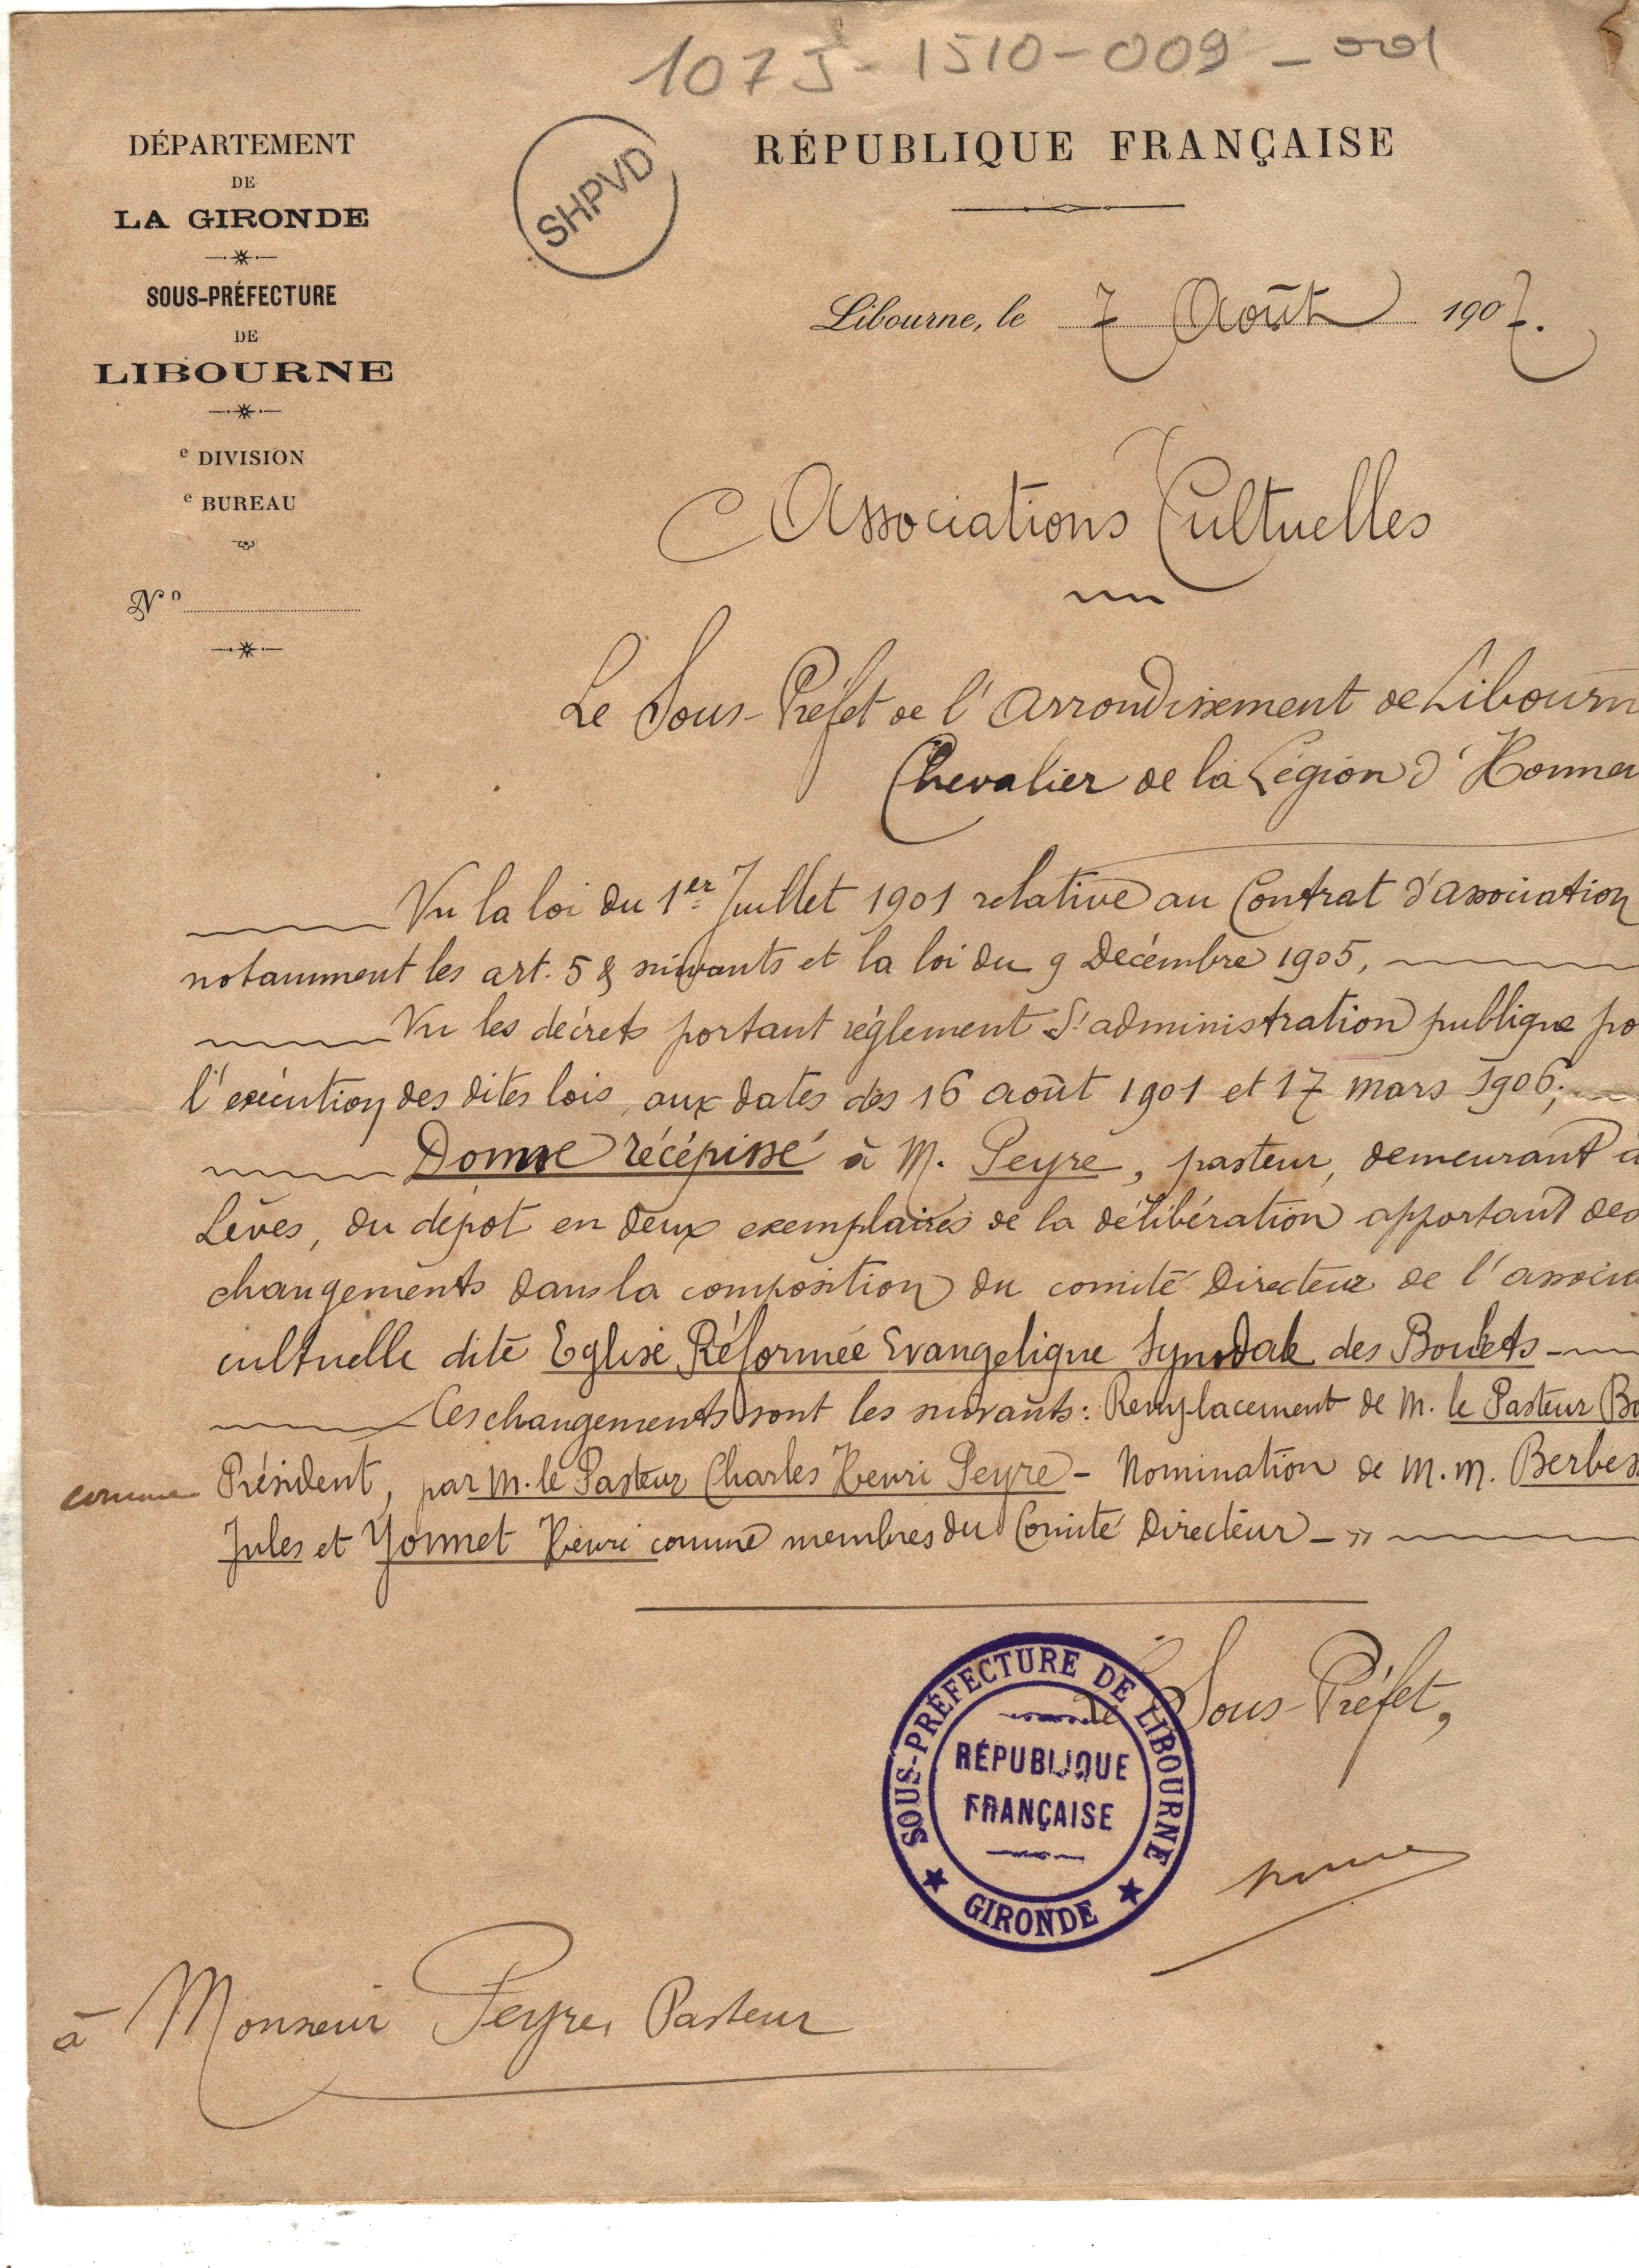 107J-1510-009-001
DÉPARTEMENT
DE
LA GIRONDE
SOUS-PRÉFECTURE
DE
LIBOURNE
e DIVISION
e BUREAU
No
SHPVD
RÉPUBLIQUE FRANÇAISE
Libourne, le 7 Août 1907.
Associations Cultuelles
Le Sous-Préfet de l'Arrondissement de Libourn
Chevalier de la Légion d'Honneu
Vu la loi du 1er Juillet 1901 relative au Contrat d'association
notamment les art. 5 & suivants et la loi du 9 Décembre 1905,
Vu les décrets portant réglement d'administration publique po
l'exécution des dites lois, aux dates des 16 août 1901 et 17 mars 1906;
Donne récépissé à M. Peyre, pasteur, demeurant à
Lèves, du dépot en deux exemplaires de la délibération apportant des
changements dans la composition du comité Directeur de l'associa
cultuelle dite Eglise Réformée Evangelique Synodale des Bouhets
Ces changements sont les suivants: Remplacement de M. le Pasteur Bo
comme Président, par M. le Pasteur Charles Henri Peyre - Nomination de M.M. Berbes
Jules et Yonnet Henri comme membres du Comité Directeur - »
Le Sous-Préfet,
SOUS-PRÉFECTURE DE LIBOURNE
RÉPUBLIQUE
FRANÇAISE
GIRONDE
à Monsieur Peyre, Pasteur